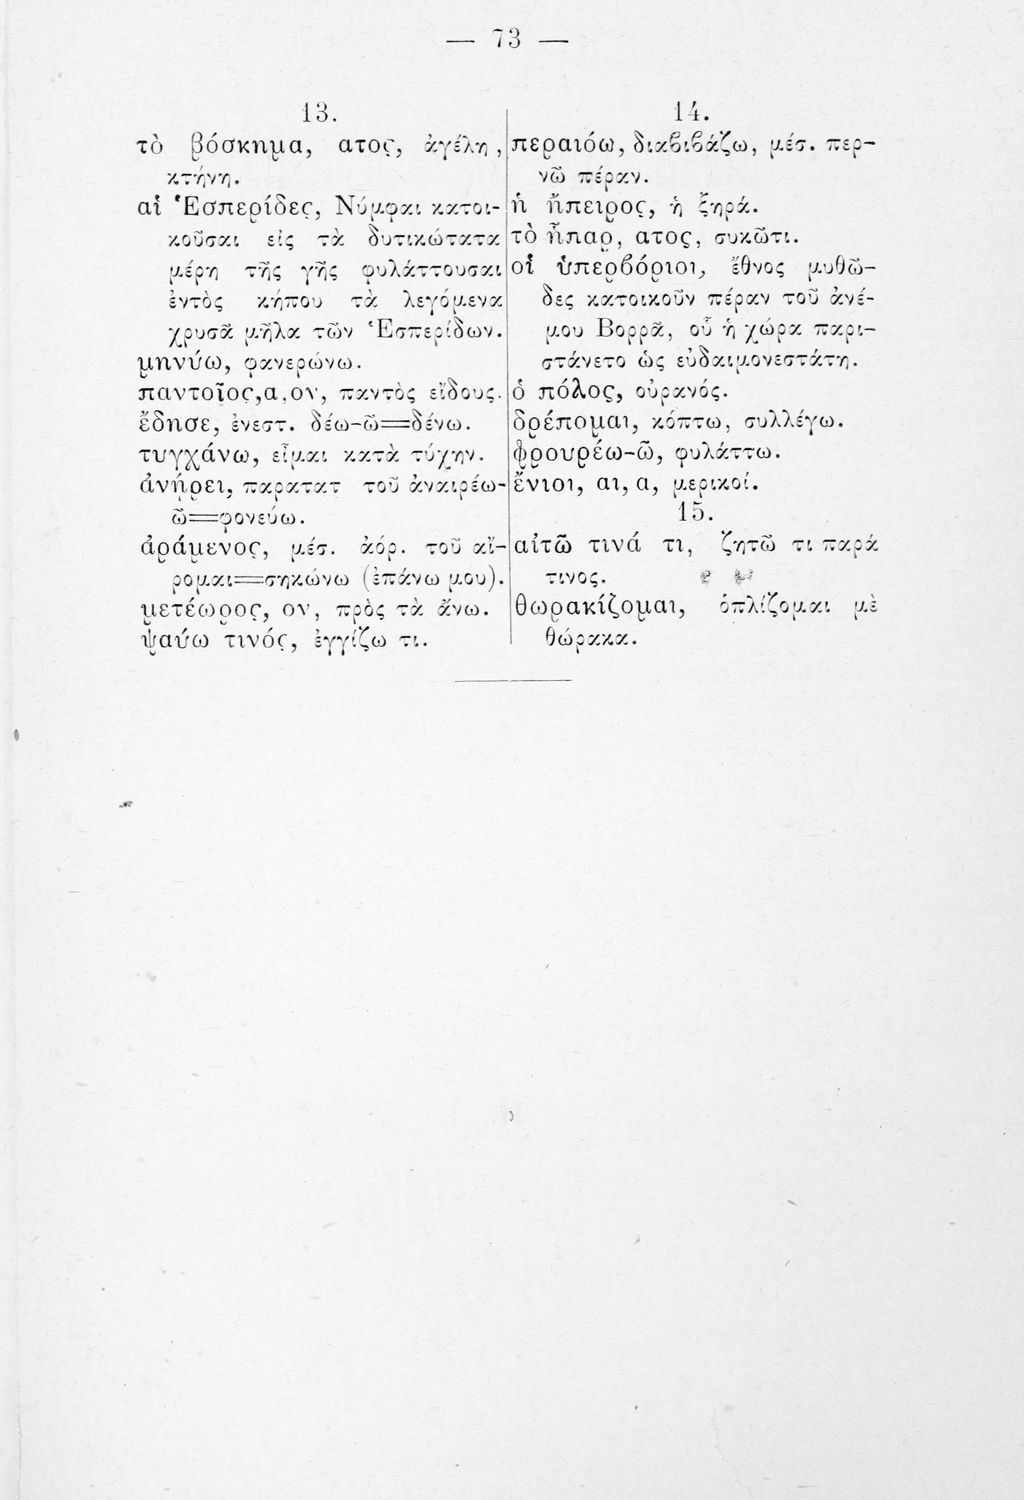 — 73 —
13.
τὸ βόσκημα, ατος, ἀγέλη,
κτήνη.
αἱ Ἑσπερίδες, Νύμφαι κατοι-
κοῦσαι εἰς τὰ δυτικώτατα
μέρη τῆς γῆς φυλάττουσαι
ἐντὸς κήπου τὰ λεγόμενα
χρυσᾶ μῆλα τῶν Ἑσπερίδων.
μηνύω, φανερώνω.
παντοῖος,α,ον, παντὸς εἴδους.
ἔδησε, ἐνεστ. δέω-ῶ=δένω.
τυγχάνω, εἶμαι κατὰ τύχην.
ἀνῄρει, παρατατ τοῦ ἀναιρέω-
ῶ=φονεύω.
ἀράμενος, μέσ. ἀόρ. τοῦ αἴ-
ρομαι=σηκώνω (ἐπάνω μου).
μετέωρος, ον, πρὸς τὰ ἄνω.
ψαύω τινός, ἐγγίζω τι.
14.
περαιόω, διαβιβάζω, μέσ. περ-
νῶ πέραν.
ἡ ἤπειρος, ἡ ξηρά.
τὸ ἧπαρ, ατος, συκῶτι.
οἱ ὑπερβόριοι, ἔθνος μυθῶ-
δες κατοικοῦν πέραν τοῦ ἀνέ-
μου Βορρᾶ, οὗ ἡ χώρα παρι-
στάνετο ὡς εὐδαιμονεστάτη.
ὁ πόλος, οὐρανός.
δρέπομαι, κόπτω, συλλέγω.
φρουρέω-ῶ, φυλάττω.
ἔνιοι, αι, α, μερικοί.
15.
αἰτῶ τινά τι, ζητῶ τι παρά
τινος.
θωρακίζομαι, ὁπλίζομαι μὲ
θώρακα.